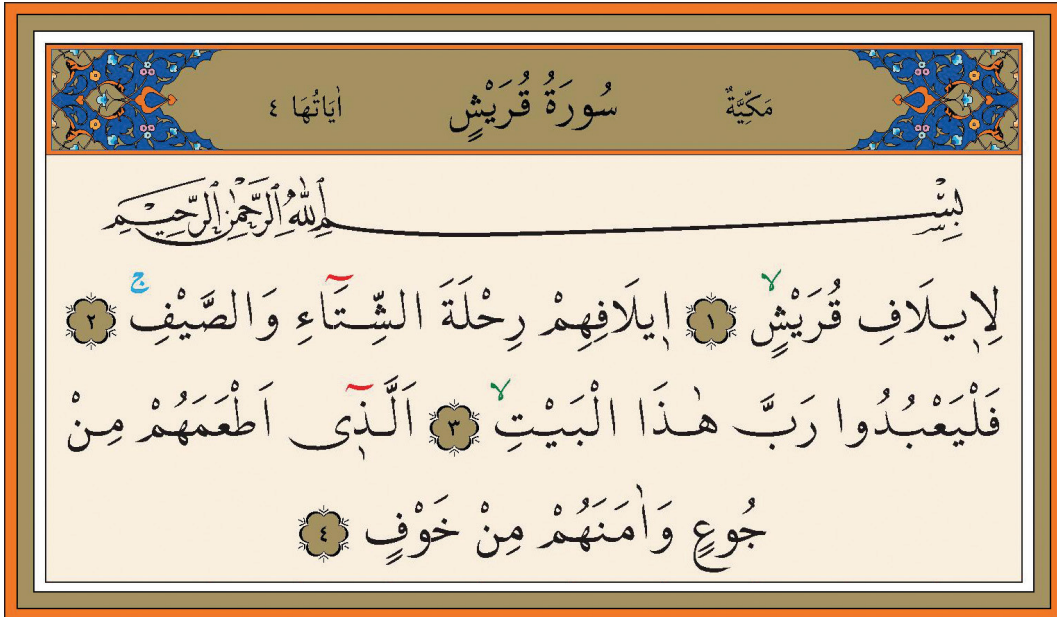 مَكِّيَّةٌ سُورَةُ قُرَيْشٍ اٰيَاتُهَا ٤
بِسْمِ اللّٰهِ الرَّحْمٰنِ الرَّحِيمِ
لِا۪يلَافِ قُرَيْشٍۙ ١ ا۪يلَافِهِمْ رِحْلَةَ الشِّتَٓاءِ وَالصَّيْفِۚ ٢
فَلْيَعْبُدُوا رَبَّ هٰذَا الْبَيْتِۙ ٣ اَلَّذ۪ٓي اَطْعَمَهُمْ مِنْ
جُوعٍ وَاٰمَنَهُمْ مِنْ خَوْفٍ ٤